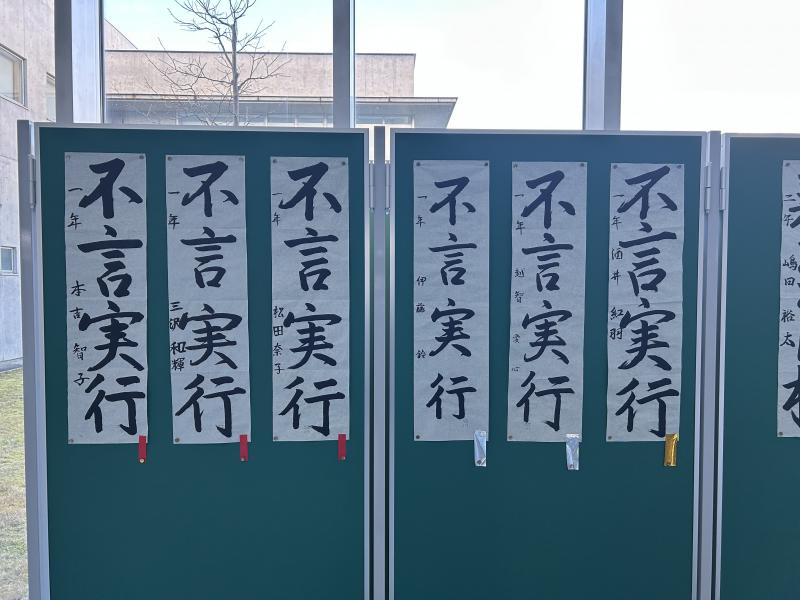 不言実行
一年 本吉 智子
不言実行
一年 三沢 和輝
不言実行
一年 松田奈子
不言実行
一年 伊藤 鈴
不言実行
一年 越智 愛心
不言実行
一年 酒井 紅羽
二年 嶋田 裕太